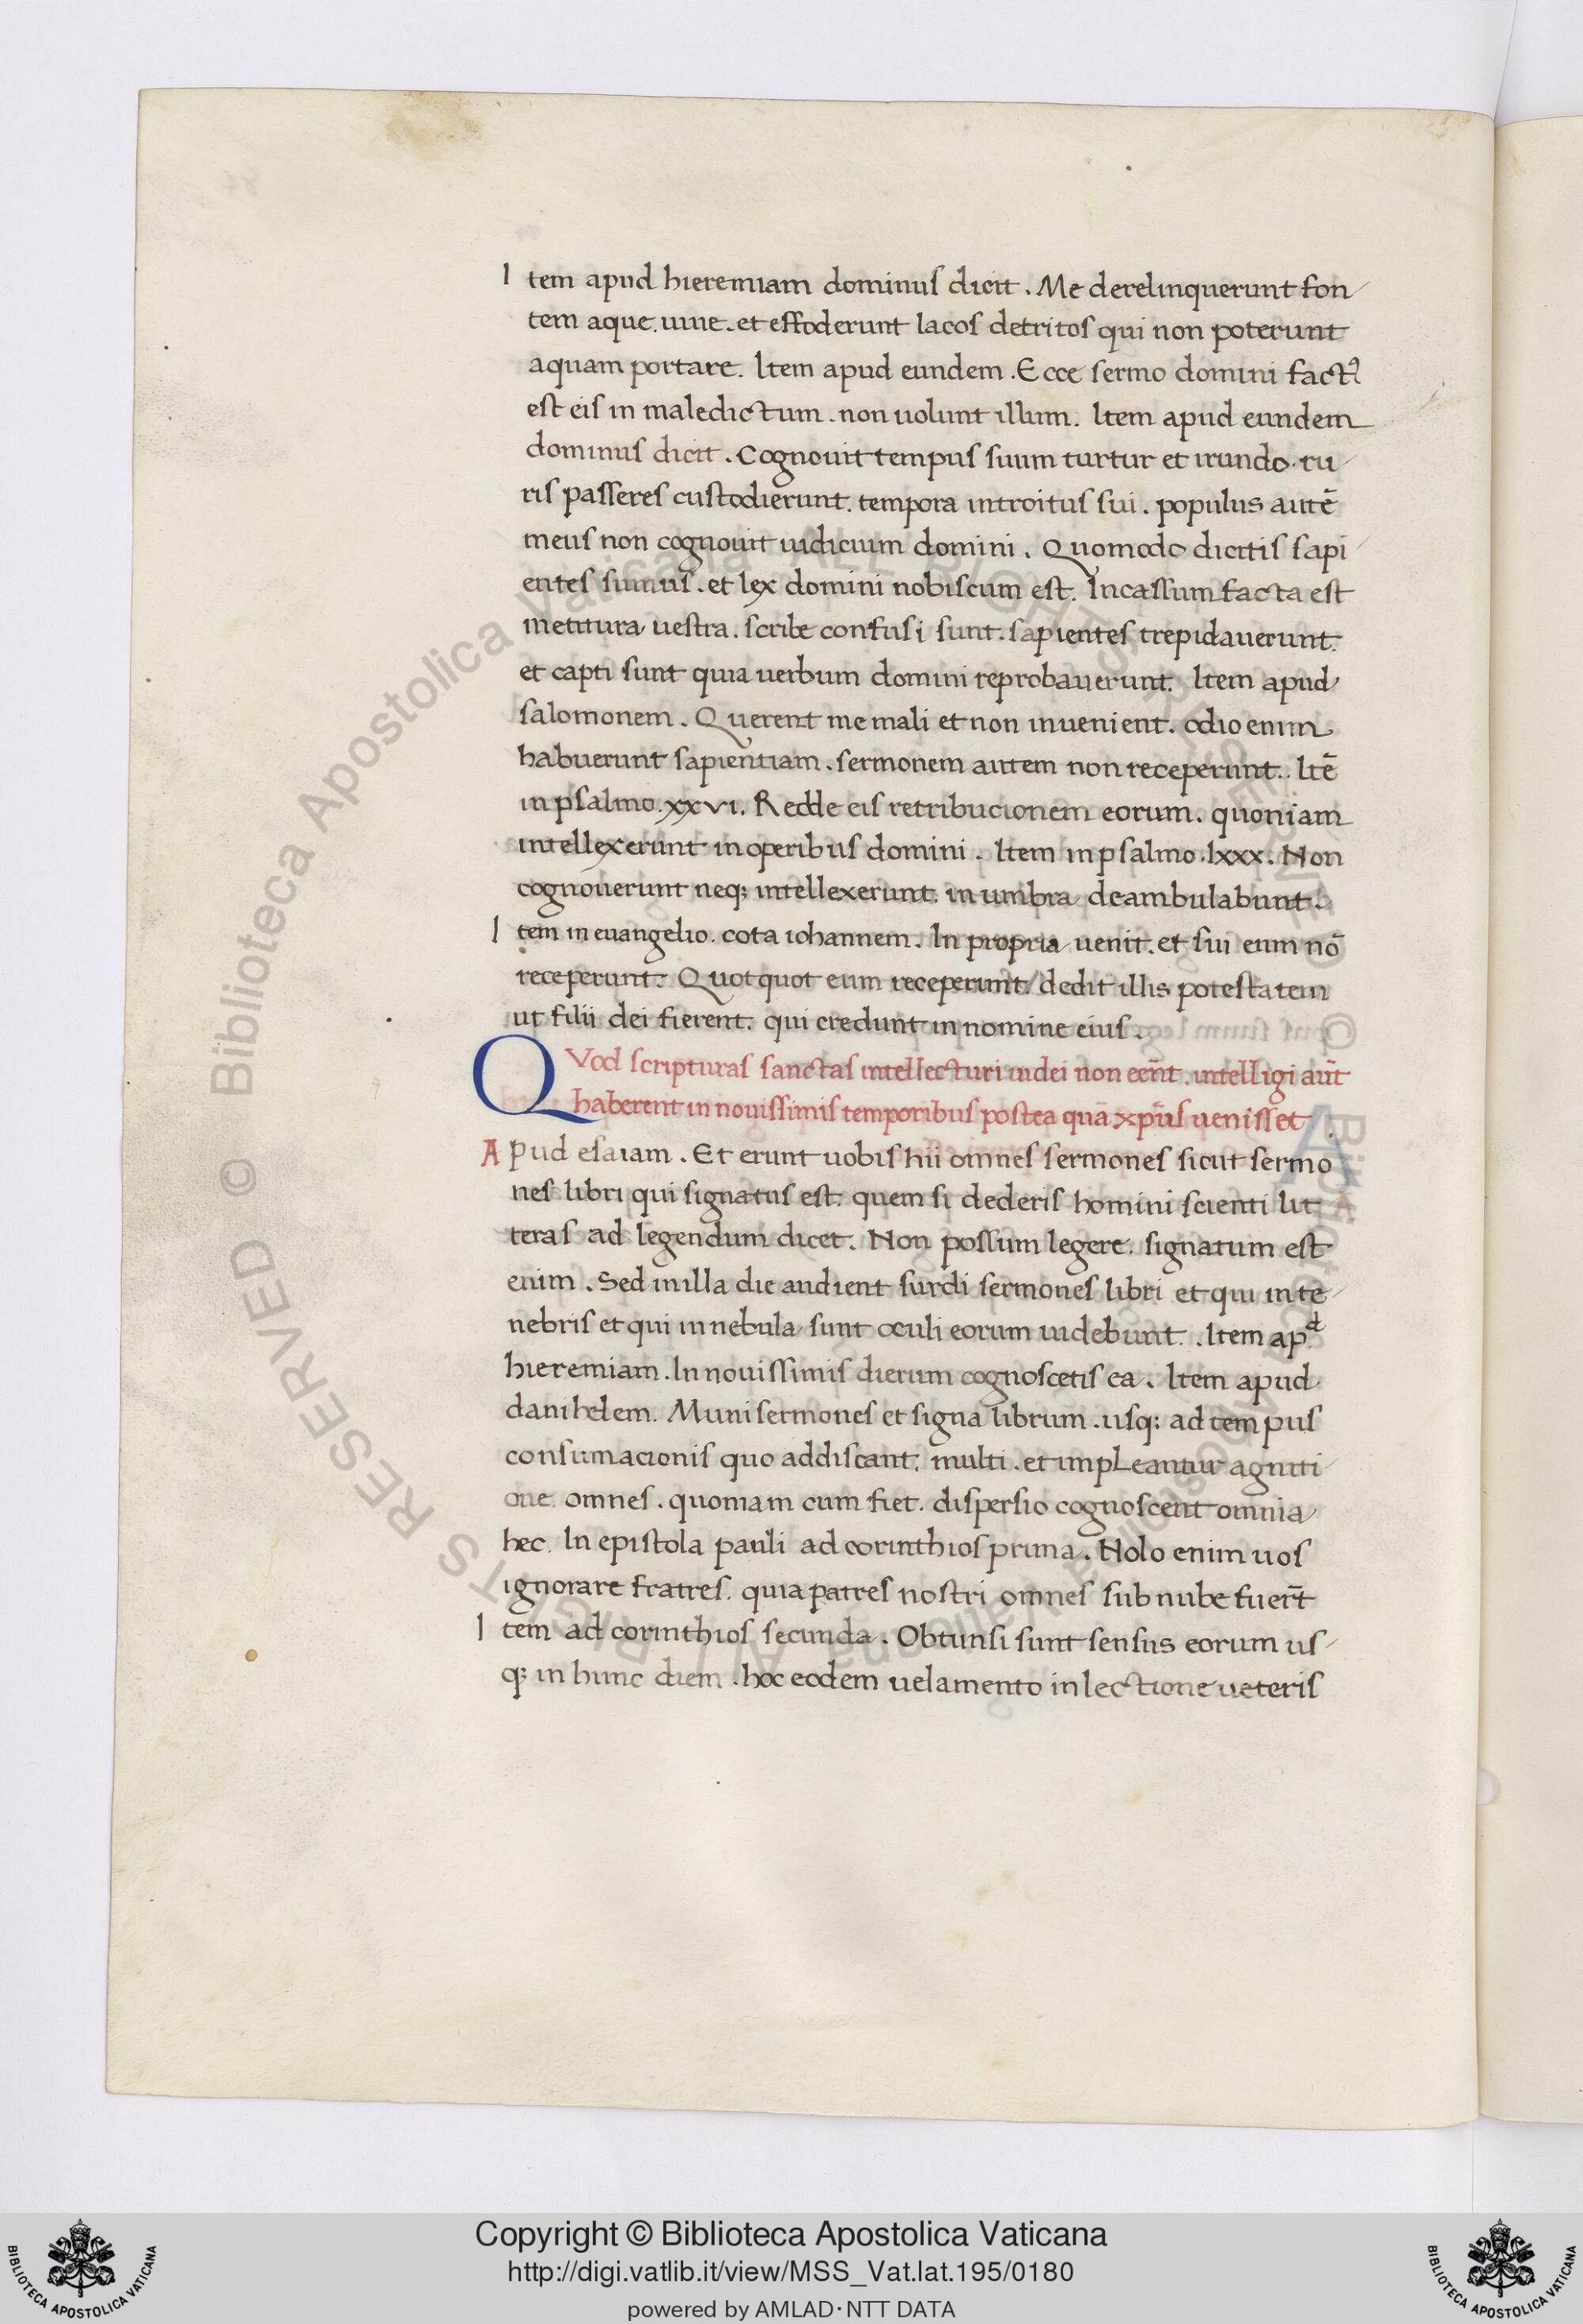 Item apud hieremiam dominus dicit . Me derelinquerunt fon
tem aque . uiue . et effoderunt lacos detritos qui non poterunt
aquam portare . Item apud eundem . Ecce sermo domini factꝰ
est eis in maledictum . non uolunt illum . Item apud eundem
dominus dicit . Cognouit tempus suum turtur et irundo . ru
ris passeres custodierunt . tempora introitus sui . populus autē
meus non cognouit iudicium domini . Quomodo dicitis sapi
entes sumus . et lex domini nobiscum est . Incassum facta est
metitura uestra . scribe confusi sunt . sapientes trepidauerunt .
et capti sunt quia uerbum domini reprobauerunt . Item apud
salomonem . Querent me mali et non inuenient . odio enim
habuerunt sapientiam . sermonem autem non receperunt . . Itē
in psalmo . xxvi . Redde eis retribucionem eorum . quoniam
intellexerunt in operibus domini . Item in psalmo . lxxx . Non
cognouerunt neq; intellexerunt . in umbra deambulabunt .
Item in euangelio . cota iohannem . In propria uenit . et sui eum nō
receperunt . Quotquot eum receperunt / dedit illis potestatem
ut filii dei fierent . qui credunt in nomine eius .
QVod scripturas sanctas intellecturi iudei non eēnt . intelligi aūt
haberent in nouissimis temporibus postea quā xp̄us uenisset .
APud esaiam . Et erunt uobis hii omnes sermones sicut sermo
nes libri qui signatus est . quem si dederis homini scienti lit
teras ad legendum dicet . Non possum legere . signatum est
enim . Sed in illa die audient surdi sermones libri et qui in te
nebris et qui in nebula sunt oculi eorum uidebunt . . Item apᵈ
hieremiam . In nouissimis dierum cognoscetis ea . Item apud
danihelem . Muni sermones et signa librum . usq; ad tempus
consumacionis quo addiscant . multi . et impleantur agniti
one . omnes . quoniam cum fiet . dispersio cognoscent omnia
hec . In epistola pauli ad corinthios prima . Nolo enim uos
ignorare fratres . quia patres nostri omnes sub nube fuer̄t
Item ad corinthios secunda . Obtunsi sunt sensus eorum us
q; in hunc diem . hoc eodem uelamento in lectione ueteris
Biblioteca Apostolica Vaticana
ALL RIGHTS RESERVED ©
Copyright © Biblioteca Apostolica Vaticana
http://digi.vatlib.it/view/MSS_Vat.lat.195/0180
powered by AMLAD·NTT DATA
BIBLIOTECA APOSTOLICA VATICANA
BIBLIOTECA APOSTOLICA VATICANA